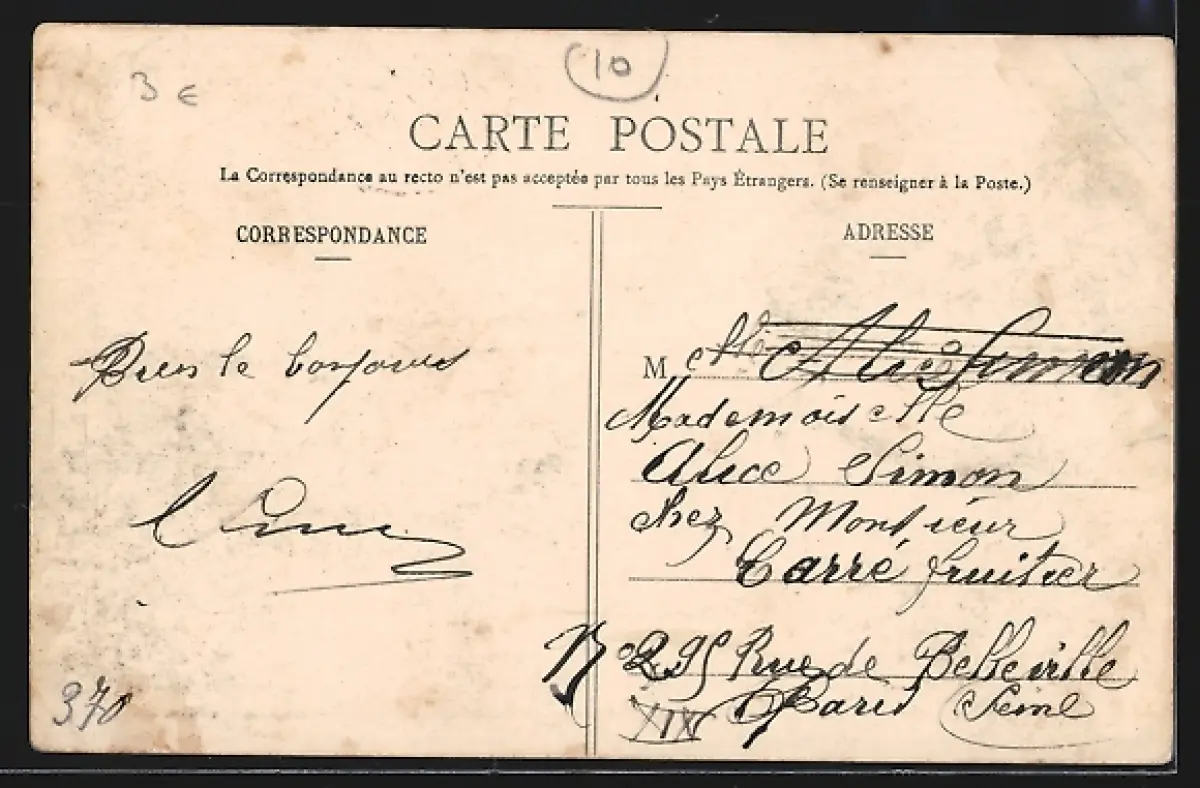 10
3 €
CARTE POSTALE
La Correspondance au recto n'est pas acceptée par tous les Pays Étrangers. (Se renseigner à la Poste.)
CORRESPONDANCE
Bien le bonjour
370
ADRESSE
M elle Alice Simon
Mademoiselle
Alice Simon
chez Monsieur
Carré fruitier
No 295 Rue de Belleville
XIX Paris Seine